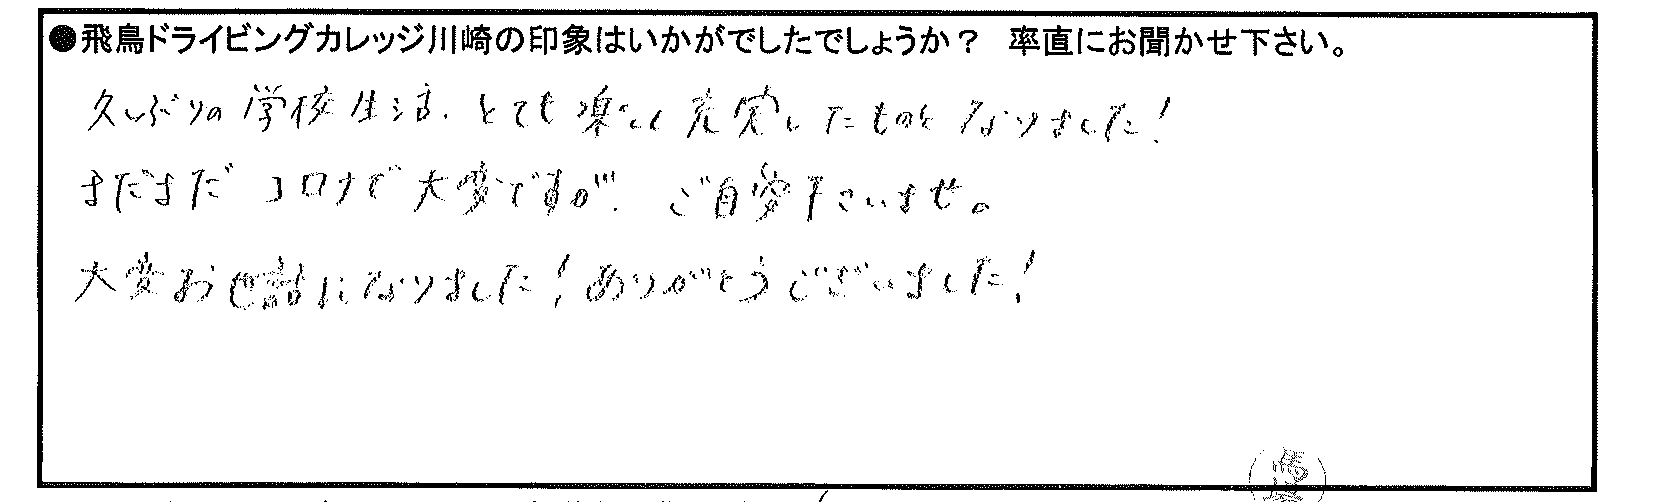 ●飛鳥ドライビングカレッジ川崎の印象はいかがでしたでしょうか？ 率直にお聞かせ下さい。
久しぶりの学校生活、とても楽しく充実したものとなりました！
まだまだコロナで大変ですが、ご自愛下さいませ。
大変お世話になりました！ありがとうございました！